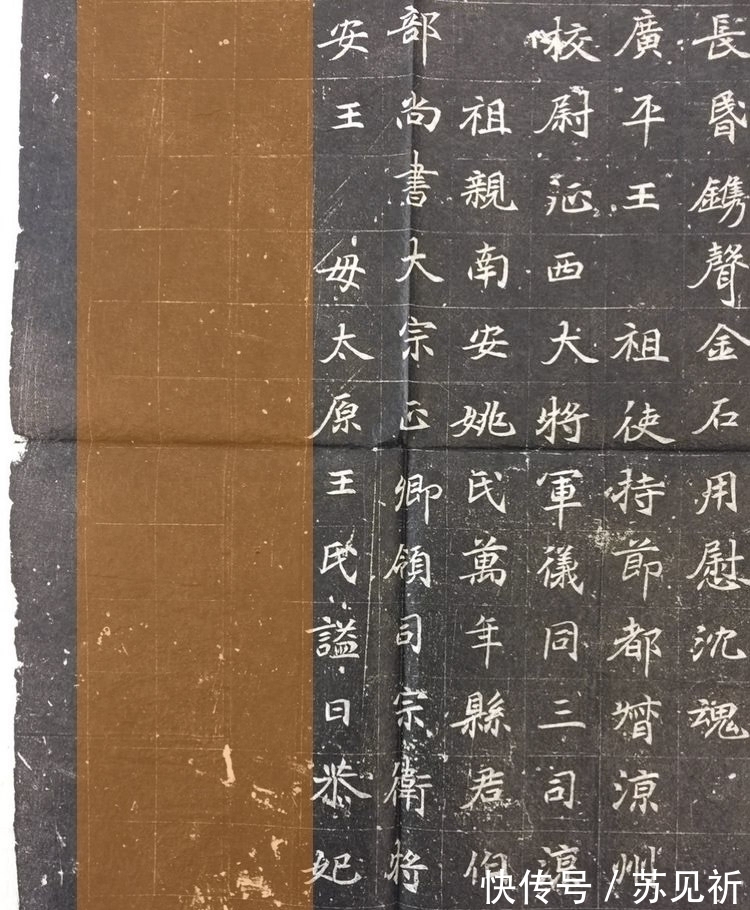 長昬鐫聲金石用慰沈魂
廣平王 祖使持節都督涼州
校尉征西大将軍儀同三司
祖親南安姚氏萬年縣君伯
部尚書大宗正卿領司宗衛将
安王 母太原王氏謚曰恭妃
快传号 / 苏见祈